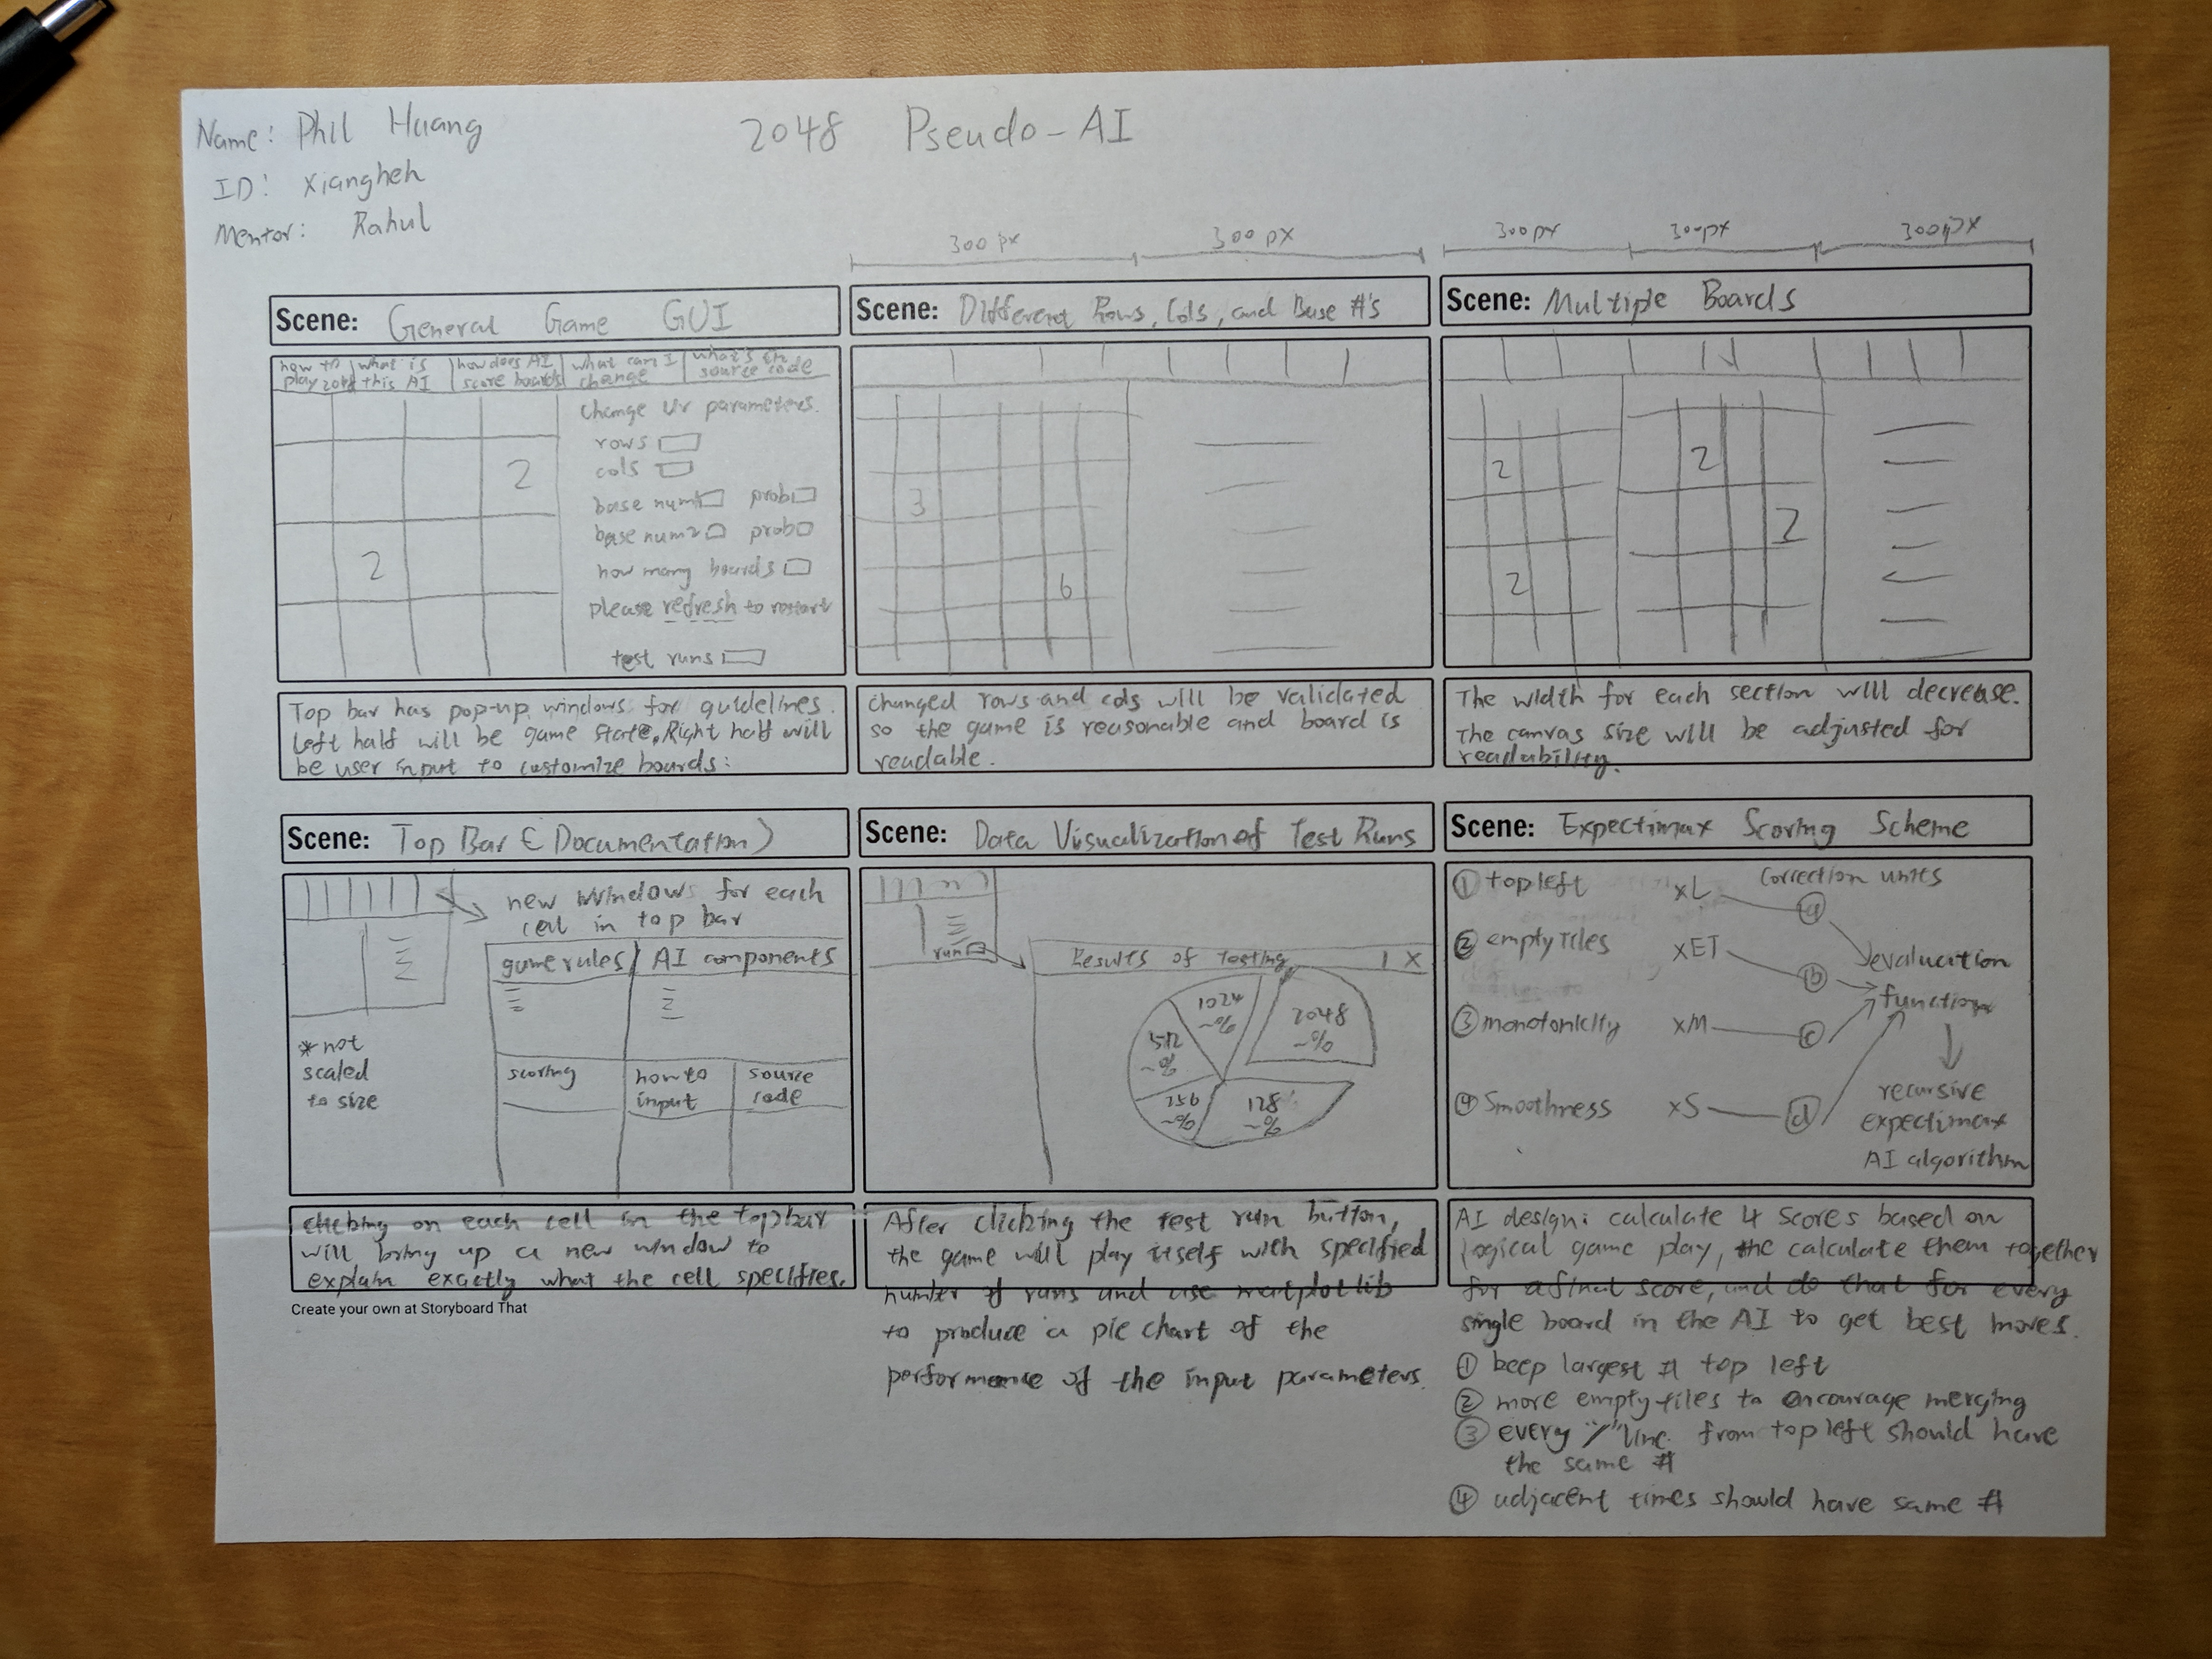 Name: Phil Huang
ID: xiangheh
Mentor: Rahul
2048 Pseudo-AI
300 px
300 px
300px
300px
300px
Scene: General Game GUI
how to play 2048
what is this AI
how does AI score boards
what can I change
what's in source code
change ur parameters.
rows
cols
2
base num1 prob
base num2 prob
2
how many boards
please refresh to restart
test runs
Top bar has pop-up windows for guidelines.
Left half will be game state. Right half will
be user input to customize boards:
Scene: Different Rows, Cols, and Base #'s
3
6
changed rows and cols will be validated
so the game is reasonable and board is
readable.
Scene: Multiple Boards
2
2
2
2
The width for each section will decrease.
The canvas size will be adjusted for
readability.
Scene: Top Bar (Documentation)
new windows for each
cell in top bar
game rules AI components
* not
scaled
to size
scoring
how to
input
source
code
clicking on each cell in the topbar
will bring up a new window to
explain exactly what the cell specifies.
Create your own at Storyboard That
Scene: Data Visualization of Test Runs
run
Results of Testing X
1024
~%
2048
~%
512
~%
256
~%
128
~%
After clicking the test run button,
the game will play itself with specified
number of runs and use matplotlib
to produce a pie chart of the
performance of the input parameters.
Scene: Expectimax Scoring Scheme
correction units
① top left xL ⓐ
② empty tiles xET ⓑ
evaluation
function
③ monotonicity xM ⓒ
④ Smoothness xS ⓓ
recursive
expectimax
AI algorithm
AI design: calculate 4 scores based on
logical game play, the calculate them together
for a final score, and do that for every
single board in the AI to get best moves.
① keep largest # top left
② more empty tiles to encourage merging
③ every "/" line from top left should have
the same #
④ adjacent times should have same #